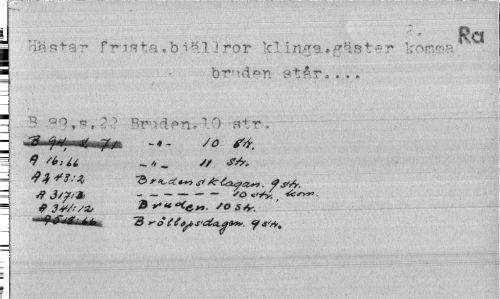 Ra
Hästar frusta, bjällror klinga, gäster komma
bruden står....
B 89, s. 22 Bruden. 10 str.
B 94, s. 71 -"- 10 str.
A 16:66 -"- 11 str.
A 243:2 Brudens klagan. 9 str.
A 317:3 - - - - - - - 10 str., kom.
A 341:12 Bruden. 10 str.
A 518:66 Bröllopsdagen. 9 str.